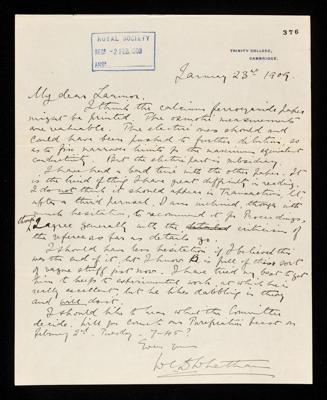 376
ROYAL SOCIETY
REC. -2 FEB. 1909
ANS.
TRINITY COLLEGE,
CAMBRIDGE.
January 23rd 1909.
My dear Larmor,
I think the calcium ferrocyanide paper
might be printed. The osmotic measurements
are valuable. The electric ones should and
could have been pushed to further dilution, so
as to fix narrower limits for the maximum equivalent
conductivity. But the electric part is subsidiary.
I have had a bad time with the other paper. It
is the kind of thing I have great difficulty in reading.
I do not think it should appear in Transactions. But
after a third perusal, I am inclined, though with
much hesitation, to recommend it for Proceedings,
though I agree generally with the detailed criticism of
the referee as far as details go.
I should have less hesitation if I believed this
was the end of it, but I know B. is full of this sort
of vague stuff just now. I have tried my best to get
him to keep to experimental work, at which he is
really excellent, but he likes dabbling in theory
and will do it.
I should like to hear what the Committee
decide. Will you come to our Purification Feast on
February 2nd. Tuesday. 7-45?
Ever yours
W C D Whetham